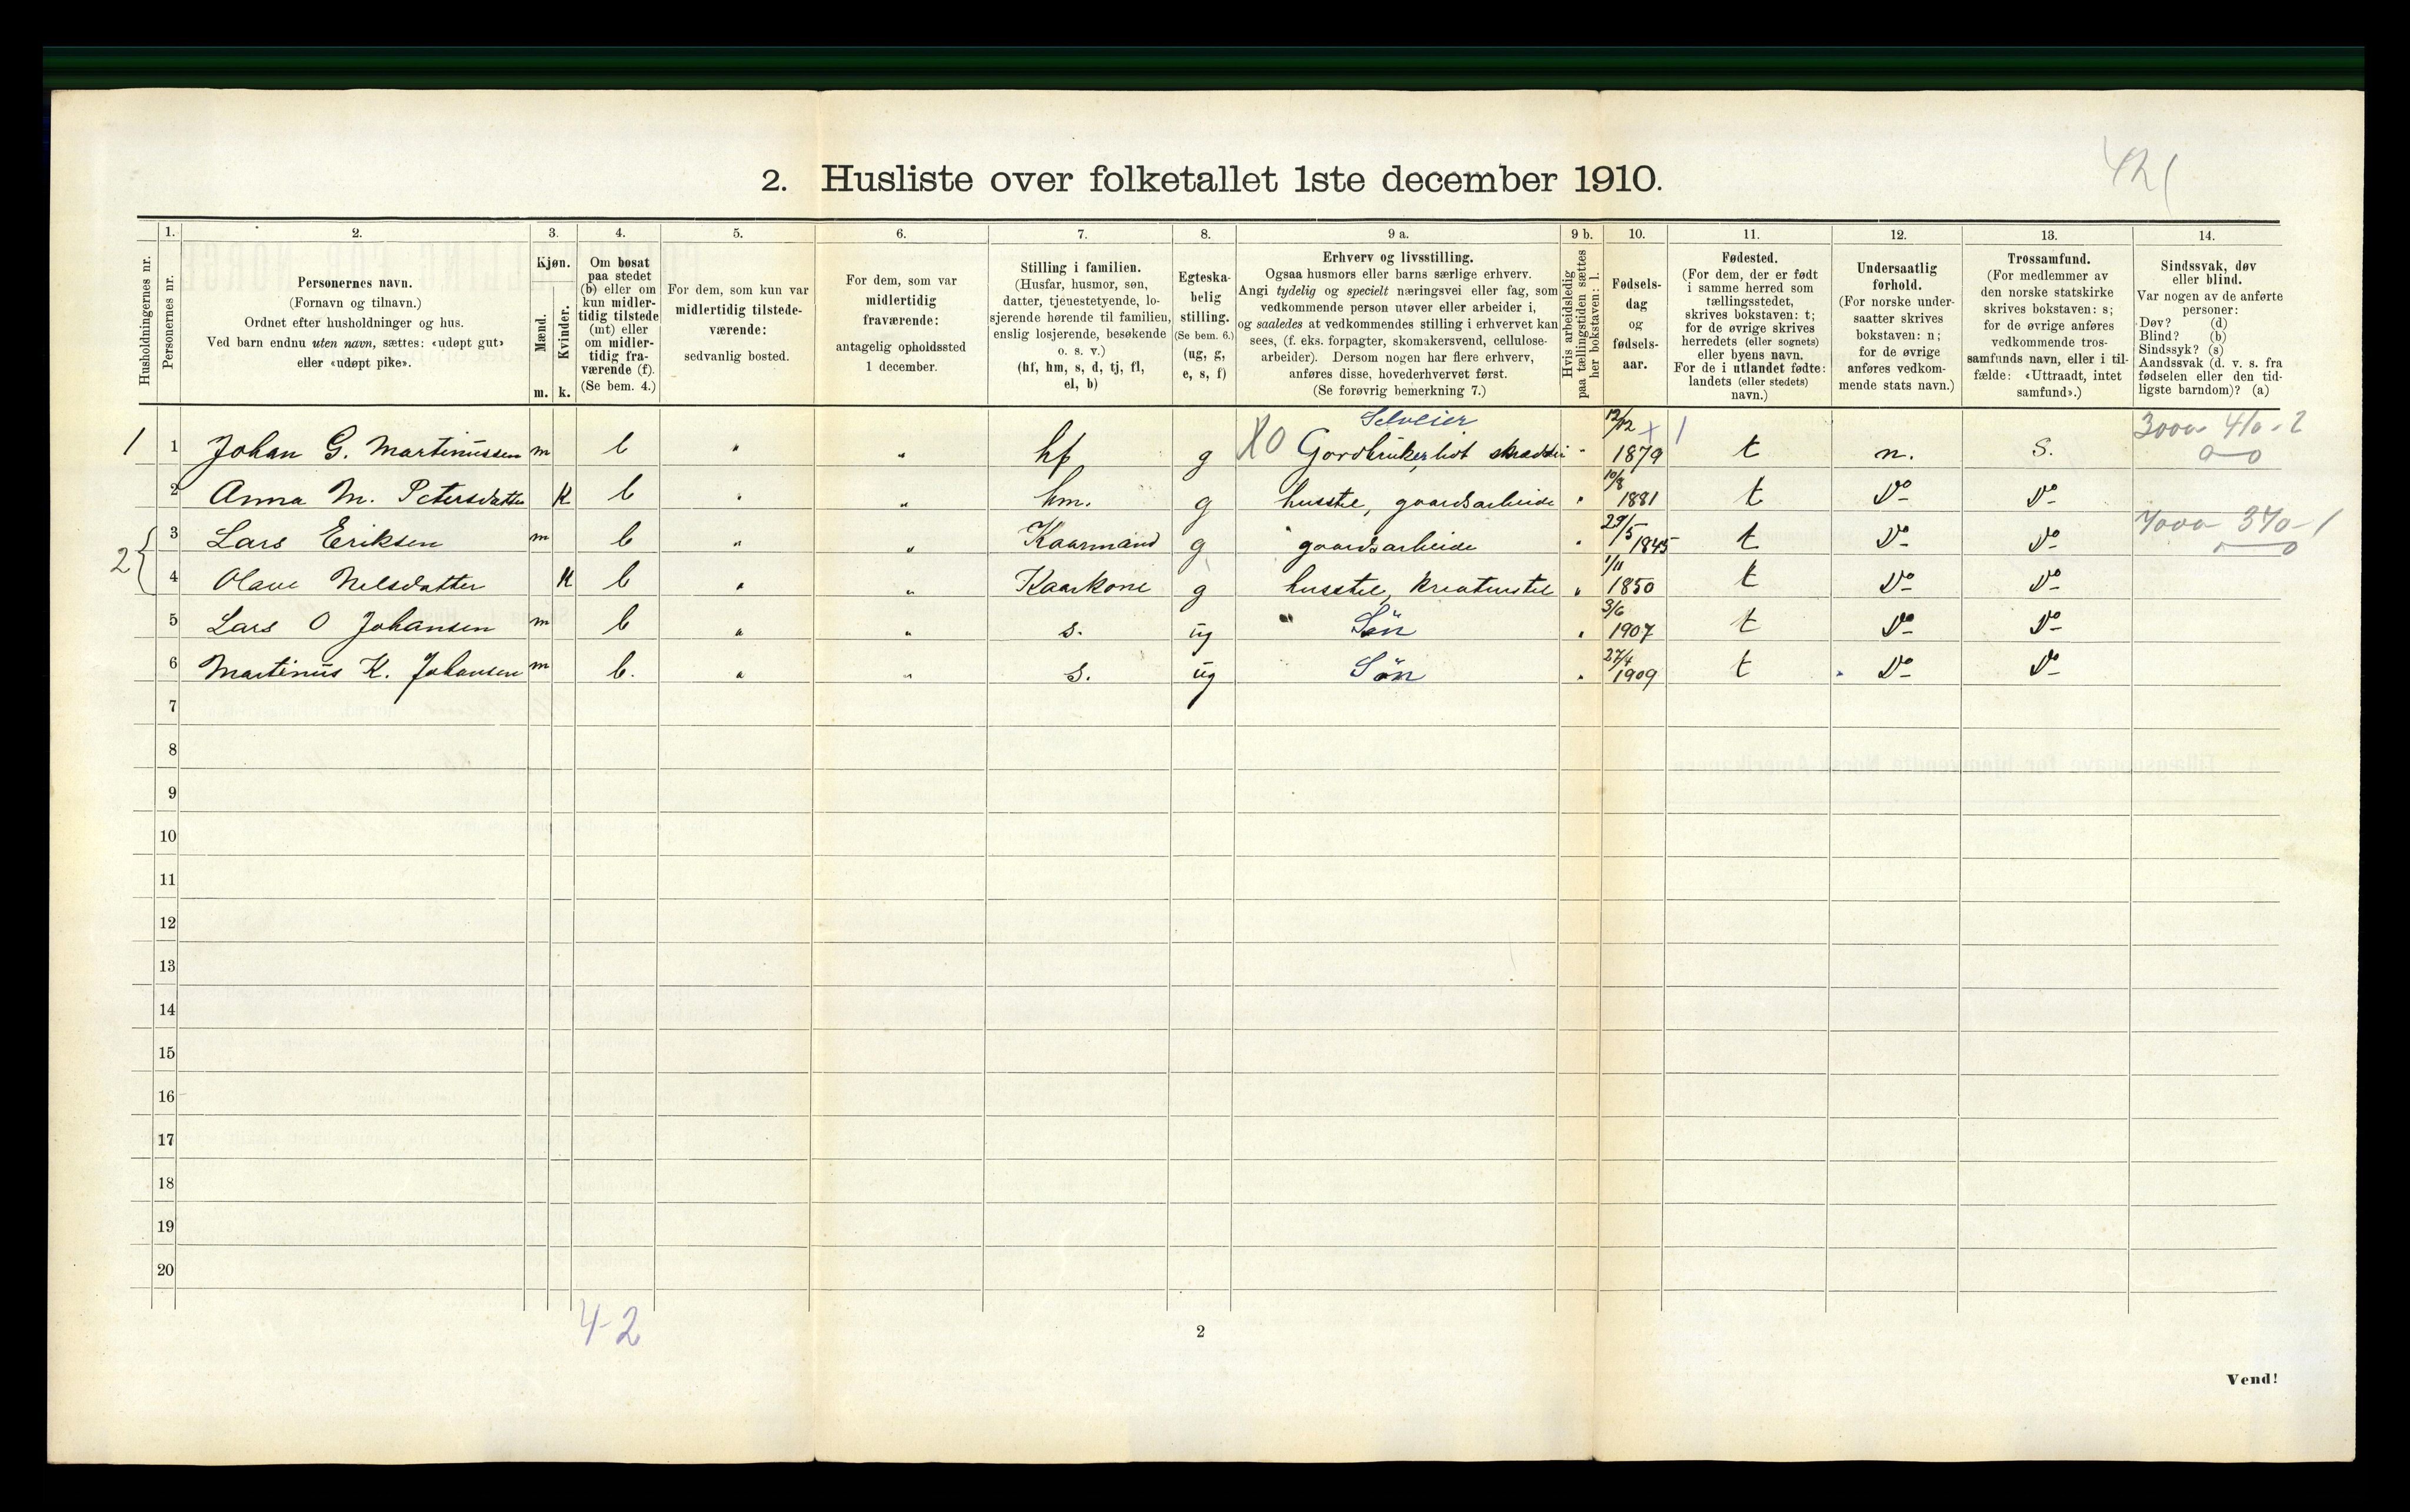 421
2. Husliste over folketallet 1ste december 1910.
Husholdningernes nr.
1. Personernes nr.
2. Personernes navn. (Fornavn og tilnavn.) Ordnet efter husholdninger og hus. Ved barn endnu uten navn, sættes: «udøpt gut» eller «udøpt pike».
3. Kjøn. Mænd. m. Kvinder. k.
4. Om bosat paa stedet (b) eller om kun midlertidig tilstede (mt) eller om midlertidig fraværende (f). (Se bem. 4.)
5. For dem, som kun var midlertidig tilstedeværende: sedvanlig bosted.
6. For dem, som var midlertidig fraværende: antagelig opholdssted 1 december.
7. Stilling i familien. (Husfar, husmor, søn, datter, tjenestetyende, losjerende hørende til familien, enslig losjerende, besøkende o. s. v.) (hf, hm, s, d, tj, fl, el, b)
8. Egteskabelig stilling. (Se bem. 6.) (ug, g, e, s, f)
9 a. Erhverv og livsstilling. Ogsaa husmors eller barns særlige erhverv. Angi tydelig og specielt næringsvei eller fag, som vedkommende person utøver eller arbeider i, og saaledes at vedkommendes stilling i erhvervet kan sees, (f. eks. forpagter, skomakersvend, cellulosearbeider). Dersom nogen har flere erhverv, anføres disse, hovederhvervet først. (Se forøvrig bemerkning 7.)
9 b. Hvis arbeidsledig paa tællingstiden sættes her bokstaven: l.
10. Fødselsdag og fødselsaar.
11. Fødested. (For dem, der er født i samme herred som tællingsstedet, skrives bokstaven: t; for de øvrige skrives herredets (eller sognets) eller byens navn. For de i utlandet fødte: landets (eller stedets) navn.)
12. Undersaatlig forhold. (For norske undersaatter skrives bokstaven: n; for de øvrige anføres vedkommende stats navn.)
13. Trossamfund. (For medlemmer av den norske statskirke skrives bokstaven: s; for de øvrige anføres vedkommende trossamfunds navn, eller i tilfælde: «Uttraadt, intet samfund».)
14. Sindssvak, døv eller blind. Var nogen av de anførte personer: Døv? (d) Blind? (b) Sindssyk? (s) Aandssvak (d. v. s. fra fødselen eller den tidligste barndom)? (a)
Selveier 12/12 3000 - 410 - 2
1 1 Johan G. Martinussen m b " " hf g X0 Gardbruker, lidt skrædder " 1879 t n. S. 0 - 0
2 Anna M. Petersdatter K b " " hm. g husstel, gaardsarbeide " 10/8 1881 t Do Do
2 { 3 Lars Eriksen m b " " Kaarmand g " gaardsarbeide " 29/5 1845 t Do Do 7000 - 370 - 1
4 Olave Nelsdatter K b " " Kaarkone g husstel, kreaturstel " 1/11 1850 t Do Do
5 Lars O Johansen m b " " s. ug " Søn " 3/6 1907 t Do Do
6 Martinus K. Johansen m b. " " s. ug Søn " 27/4 1909 t Do Do
7
8
9
10
11
12
13
14
15
16
17
18
19
20
4-2
2
Vend!